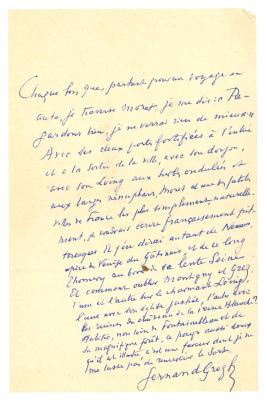 Chaque fois que, partant pour un voyage en
auto, je traverse Moret, je me dis : « Re-
gardons bien, je ne verrai rien de mieux. »
Avec ses deux portes fortifiées à l'entrée
et à la sortie de la ville, avec son donjon,
avec son Loing aux îlots ondulés et
aux larges nénuphars, Moret est une des petites
villes de France les plus simplement, naturelle-
ment, je voudrais écrire françaisement pit-
toresques. Et j'en dirai autant de Nemours,
espèce de Venise du Gâtinais et de ce long
Thomery au bord de la lente Seine.
Et comment oublier Montigny et Grez,
l'un et l'autre sur le charmant Loing,
l'une avec son église juchée, l'autre avec
les ruines du château de la reine Blanche ?
J'habite, non loin de Fontainebleau et de
sa magnifique forêt, ce pays aussi doux
qu'il est illustre : c'est une faveur dont je
ne me lasse pas de remercier le destin.
Fernand Gregh